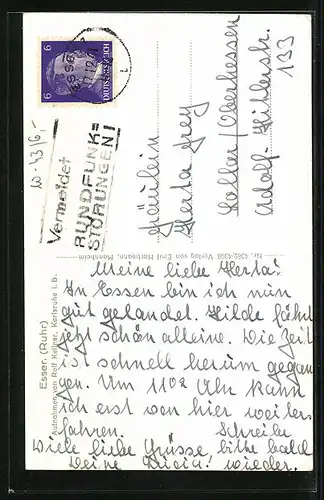 6
DEUTSCHES REICH
ESSEN
Vermeidet
RUNDFUNK=
STÖRUNGEN!
Fräulein
Herta Frey
Adolf-Hitlerstr.
133
Verlag von Emil Hartmann, Mannheim
Essen (Ruhr)
Aufnahmen von Rolf Kellner, Karlsruhe i. B.
Meine liebe Herta!
In Essen bin ich nun
gut gelandet. Hilde fährt
jetzt schön alleine. Die Zeit
ist schnell herum gegan=
gen. Um 11 02 Uhr kann
ich erst von hier weiter
fahren. Schreibe
Viele liebe Grüsse, bitte bald
Deine wieder.